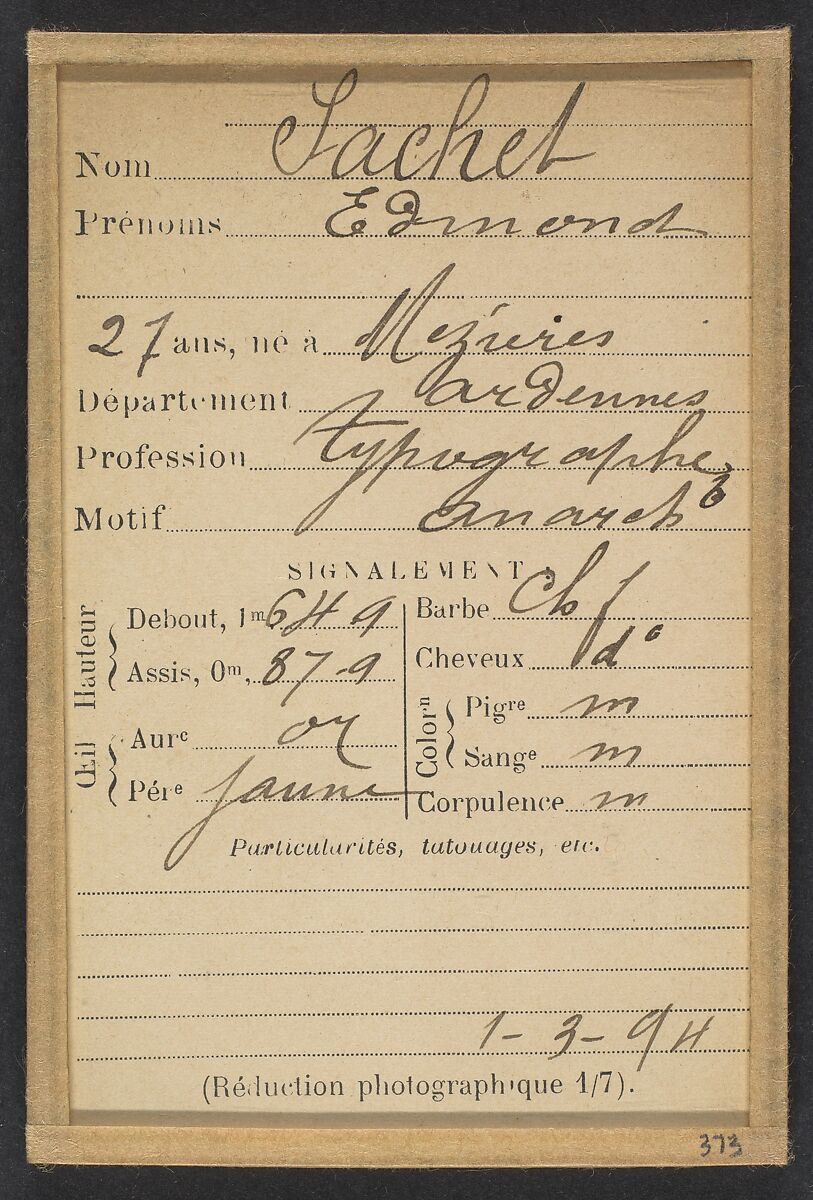 Nom Sachet
Prénoms Edmond
27 ans, né à Mezières
Département ardennes
Profession typographe
Motif anarchte
SIGNALEMENT.
Hauteur
Debout, 1m, 64 9
Assis, 0m, 87-9
Œil
Aure or
Pére jaune
Barbe Ch f
Cheveux d°
Colorn
Pigre m
Sange m
Corpulence m
Particularités, tatouages, etc.
1-3-94
(Réduction photographique 1/7).
373